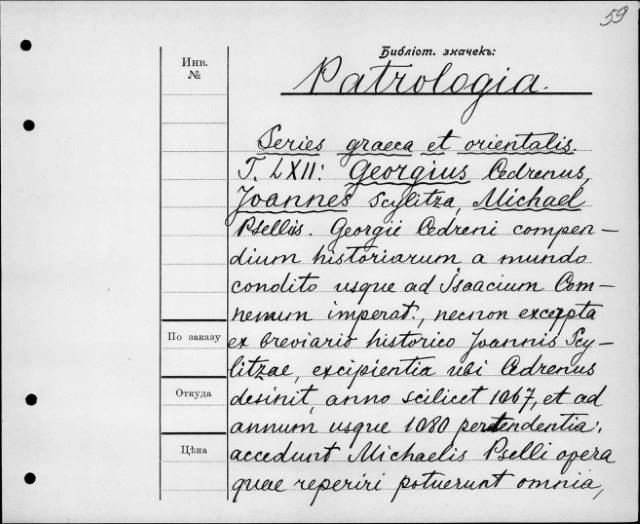 59
Библіот. значекъ:
Инв.
№
Patrologia.
Series graeca et orientalis.
T. LXII: Georgius Cedrenus,
Joannes Scylitza, Michael
Psellus. Georgii Cedreni compen-
dium historiarum a mundo
condito usque ad Isaacium Com-
nenum imperat., necnon excepta
По заказу
ex breviario historico Joannis Scy-
litzae, excipientia ubi Cedrenus
Откуда
desinit, anno scilicet 1067, et ad
annum usque 1080 pertendentia:,
Цѣна
accedunt Michaelis Pselli opera
quae reperiri potuerunt omnia,